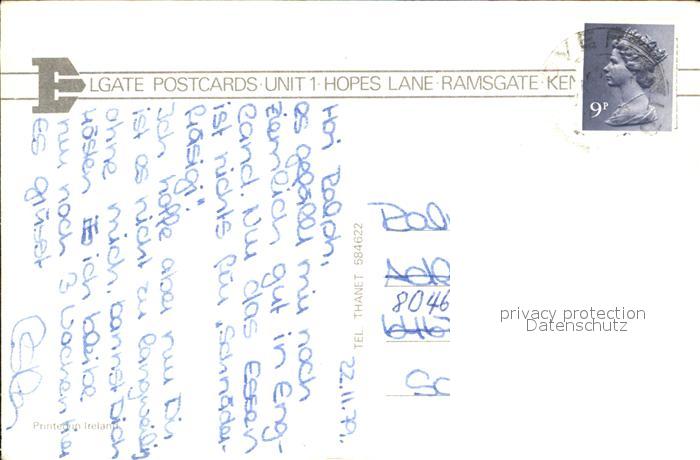 ELGATE POSTCARDS · UNIT 1 · HOPES LANE · RAMSGATE · KEN
9P
22.11.79.
Hoi Ralph,
es gefällt mir noch
ziemlich gut in Eng-
land. Nur das Essen
ist nichts für "Schnäder-
fräsigi"
Ich hoffe aber nur Dir
ist es nicht zu langweilig
ohne mich, kannst Dich
trösen ich bleibe
nur noch 3 Wochen hier
es grüsst
TEL. THANET 684622
8046
privacy protection
Datenschutz
Printed in Ireland